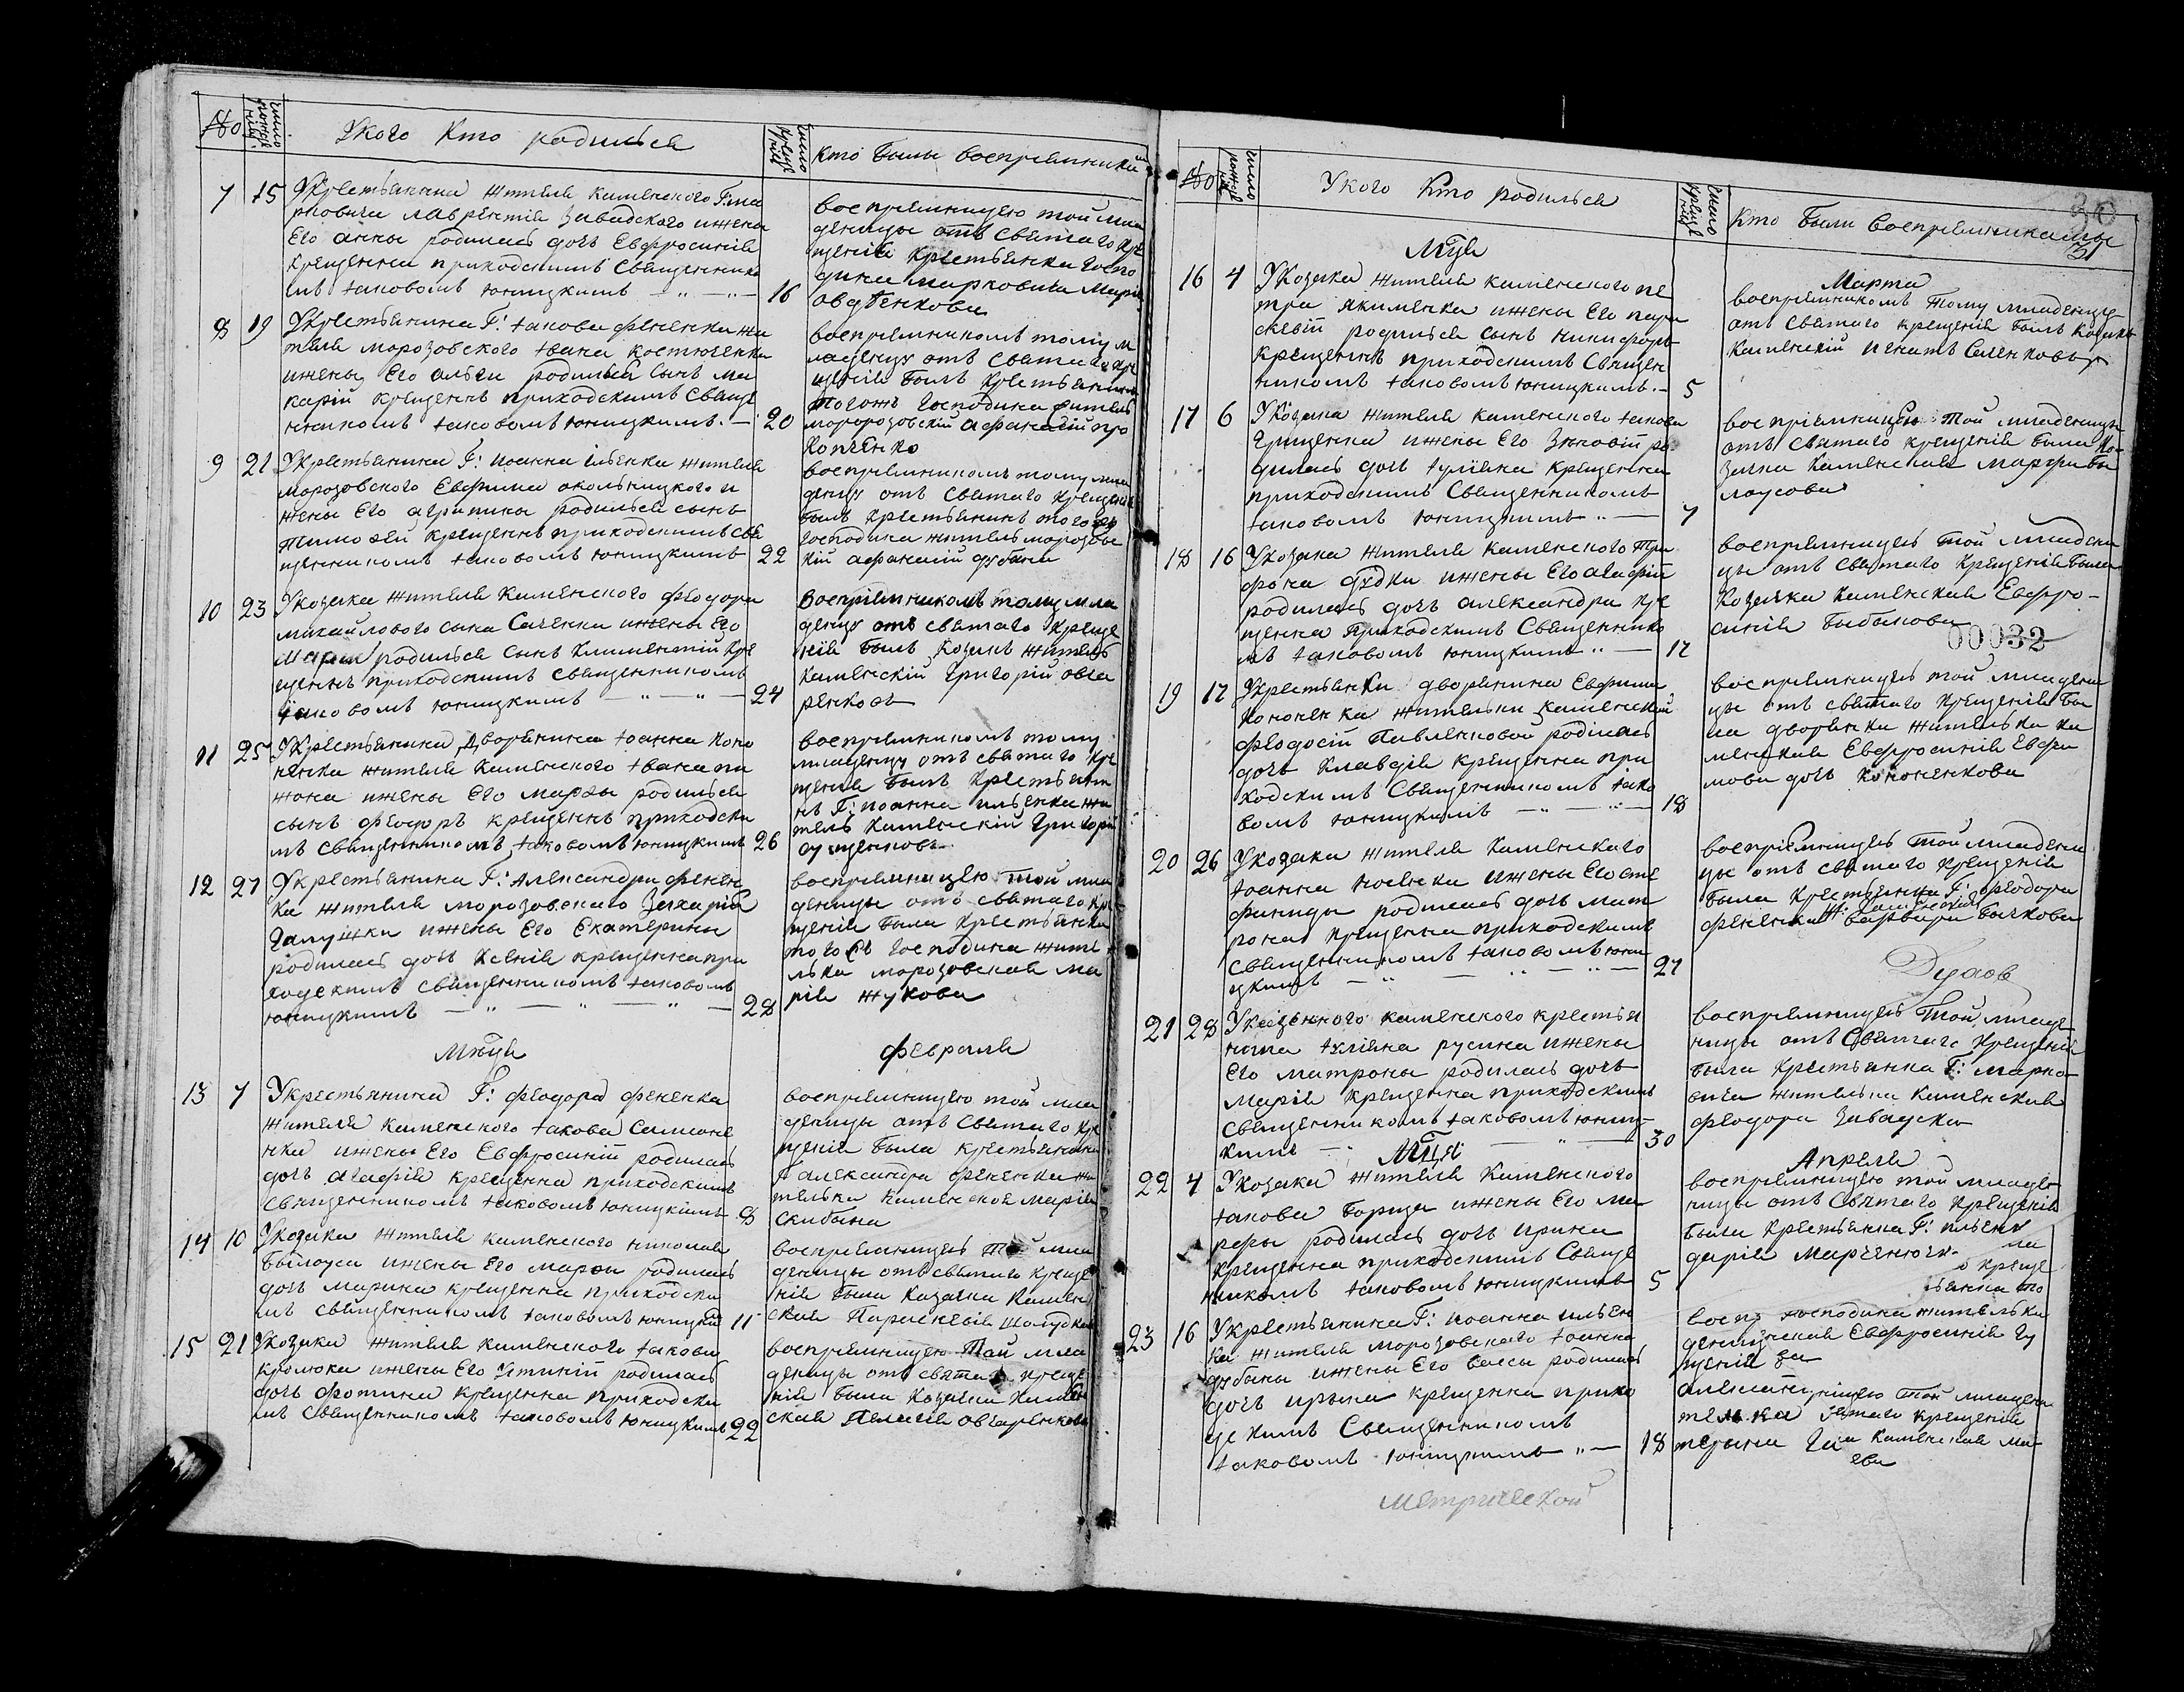 No число рожде нія Укого Кто родилься число креще нія Кто были воспріемники
7 15 Укрестьянина жителя каменского Г: ма
рковича лаврентія Завадского ижены
Его анны родилась дочь Евфросинія
крещенна приходскимъ Священнико
мъ Іаковомъ Юницкимъ — „ — „ — 16
воспріемницею той мла
деницы отъ святаго кре
щенія крестьянка госпо
дина марковича Марія
овдѣенкова
8 19 Укрестьянина Г: Іакова фененка жи
теля морозовского Ивана костюченка
ижены Его ольги родилься сынъ ма
карій крещеннъ приходскимъ Свяще
нникомъ Іаковомъ Юницкимъ. — 20
воспріемникомъ тому м
ладенцу отъ святаго кре
щенія былъ крестьянинъ
тогожъ господина житель
моророзовскій афанасій про
копченко
9 21 Укрестьянина Г: иоанна ильенка жителя
морозовского Евфима окольницкого и
жены Его агрипины родилься сынъ
тимофей крещеннъ приходскимъ свя
щенникомъ Іаковомъ Юницкимъ 22
воспріемникомъ тому мла
денцу отъ святаго крещенія
былъ крестьянинъ того же
господина житель морозовс
кій афанасій дубына
10 23 Укозака жителя каменского феодора
михайлового сына Саченка ижены Его
Маріи родилься сынъ Климентій кре
щеннъ приходскимъ священникомъ
Іаковомъ Юницкимъ — „ — „ — 24
воспріемникомъ тому мла
денцу отъ святаго креще
нія былъ козакъ житель
каменскій григорій овча
ренковъ
11 25 Укрестьянина Дворянина Іоанна коно
ненка жителя каменского Ивана па
жона ижены Его марфы родилься
сынъ феодоръ крещеннъ приходски
мъ священникомъ Іаковомъ Юницкимъ 26
воспріемникомъ тому
младенцу отъ святаго кре
щенія былъ крестьяни
нъ Г: иоанна ильенка жи
тель каменскій григорій
гущенковъ
12 27 Укрестьянина Г: Александра фенен
ка жителя морозовского Захарія
Галушки ижены Его Екатерины
родилась дочь Ксенія крещенна при
ходскимъ священникомъ Іаковомъ
Юницкимъ — „ — „ — „ — 28
воспріемницею той мла
деницы отъ святаго кре
щенія была крестьянка
того жъ господина жите
лька морозовская ма
рія жукова
Мѣсця февраля
13 7 Укрестьянина Г: феодора фененка
жителя каменского Іакова Симоне
нка ижены Его Евфросиніи родилась
дочь агафія крещенна приходскимъ
священникомъ Іаковомъ Юницкимъ 8
воспріемницею той мла
деницы отъ святаго кре
щенія была крестьянка
Г александра фененка жи
телька каменская марія
скибына
14 10 Укозака жителя каменского николая
былоуса ижены Его марфы родилась
дочь марина крещенна приходски
мъ священникомъ Іаковомъ Юницким 11
воспріемницею той мла
деницы отъ святаго креще
нія была козачка камен
ская Параскевія Шолудкова
15 21 Укозака жителя каменского Іакова
кролюка ижены Его Устиніи родилась
дочь фотина крещенна приходски
мъ священникомъ Іаковомъ Юницкимъ 22
воспріемницею той мла
деницы отъ свята креще
нія была козачка камен
ская Пелагія овчаренкова
30
31
No число рожде нія Укого Кто родилься число креще нія Кто были воспріемникамы
Мѣця Марта
16 4 Укозака жителя каменского пе
тра якименка ижены Его пара
скевіи родилься сынъ никифоръ
крещеннъ приходскимъ священ
никомъ Іаковомъ Юницкимъ. — 5
воспріемникомъ тому младенцу
отъ святаго крещенія былъ козакъ
каменскій игнатъ Саенковъ
17 6 Укозака жителя каменского Іакова
грищенка ижены Его Зиновіи ро
дилась дочь Іуліяна крещенна
приходскимъ Священникомъ
Іаковомъ Юницкимъ „ — 7
воспріемницею той младеницы
отъ святаго крещенія была ко-
зачка каменская марфа бы
лоусова
18 16 Укозака жителя каменского Три
фона дудки ижены Его агафіи
родилась дочь александра кре
щенна приходскимъ Священнико
мъ Іаковомъ Юницкимъ „ — 17
воспріемницею той младени
цы отъ святаго крещенія была
козачка каменская Евфро-
синія бабакова
00032
19 17 Укрестьянки дворянина Евфима
кононенка жительки каменской
феодосіи Павленковой родилась
дочь клавдія крещенна при
ходскимъ Священникомъ Іако
вомъ Юницкимъ — „ — „ — 18
воспріемницею той младени
цы отъ святаго крещенія бы
ла дворянка жителька ка
менская Евфросинія Евфи
мова дочь кононенкова
20 26 Укозака жителя каменского
Іоанна носенка ижены Его сте
фаниды родилась дочь мат
рона крещенна приходскимъ
священникомъ Іаковомъ Юни
цкимъ — „ — „ — „ — 27
воспріемницею той младени
цы отъ святаго крещенія
была крестьянка Г: феодора
фененка ж: каменская варвара бычкова
21 28 Указенного каменского крестья
нина Іуліяна русина ижены
Его матроны родилась дочь
марія крещенна приходскимъ
священникомъ Іаковомъ Юниц-
кимъ — „ — „ — 30
воспріемницею той младе
ницы отъ святаго крещенія
была крестьянка Г: марко-
вича жителька каменская
феодора завадска
Мѣця Апреля
22 4 Укозака жителя каменского
Іакова борща ижены Его ма
рфы родилась дочь ирина
крещенна приходскимъ Свяще
никомъ Іаковомъ Юницкимъ 5
воспріемницею той младе
ницы отъ святаго крещенія
была крестьянка Г: ильенк
дарія марченкова
23 16 Укрестьянина Г: иоанна ильен
ка жителя морозовского Іоанна
дубыны ижены Его вассы родилась
дочь ирына крещенна прихо
дскимъ Священникомъ
Іаковомъ Юницкимъ „ — 18
ла
о креще
ьянка то
восп господина жителька
дениц ская Евфросинія гу
щенія за
алексан ницею той младен
телька ятаго крещенія
терына га а каменская ма
ева
метрической